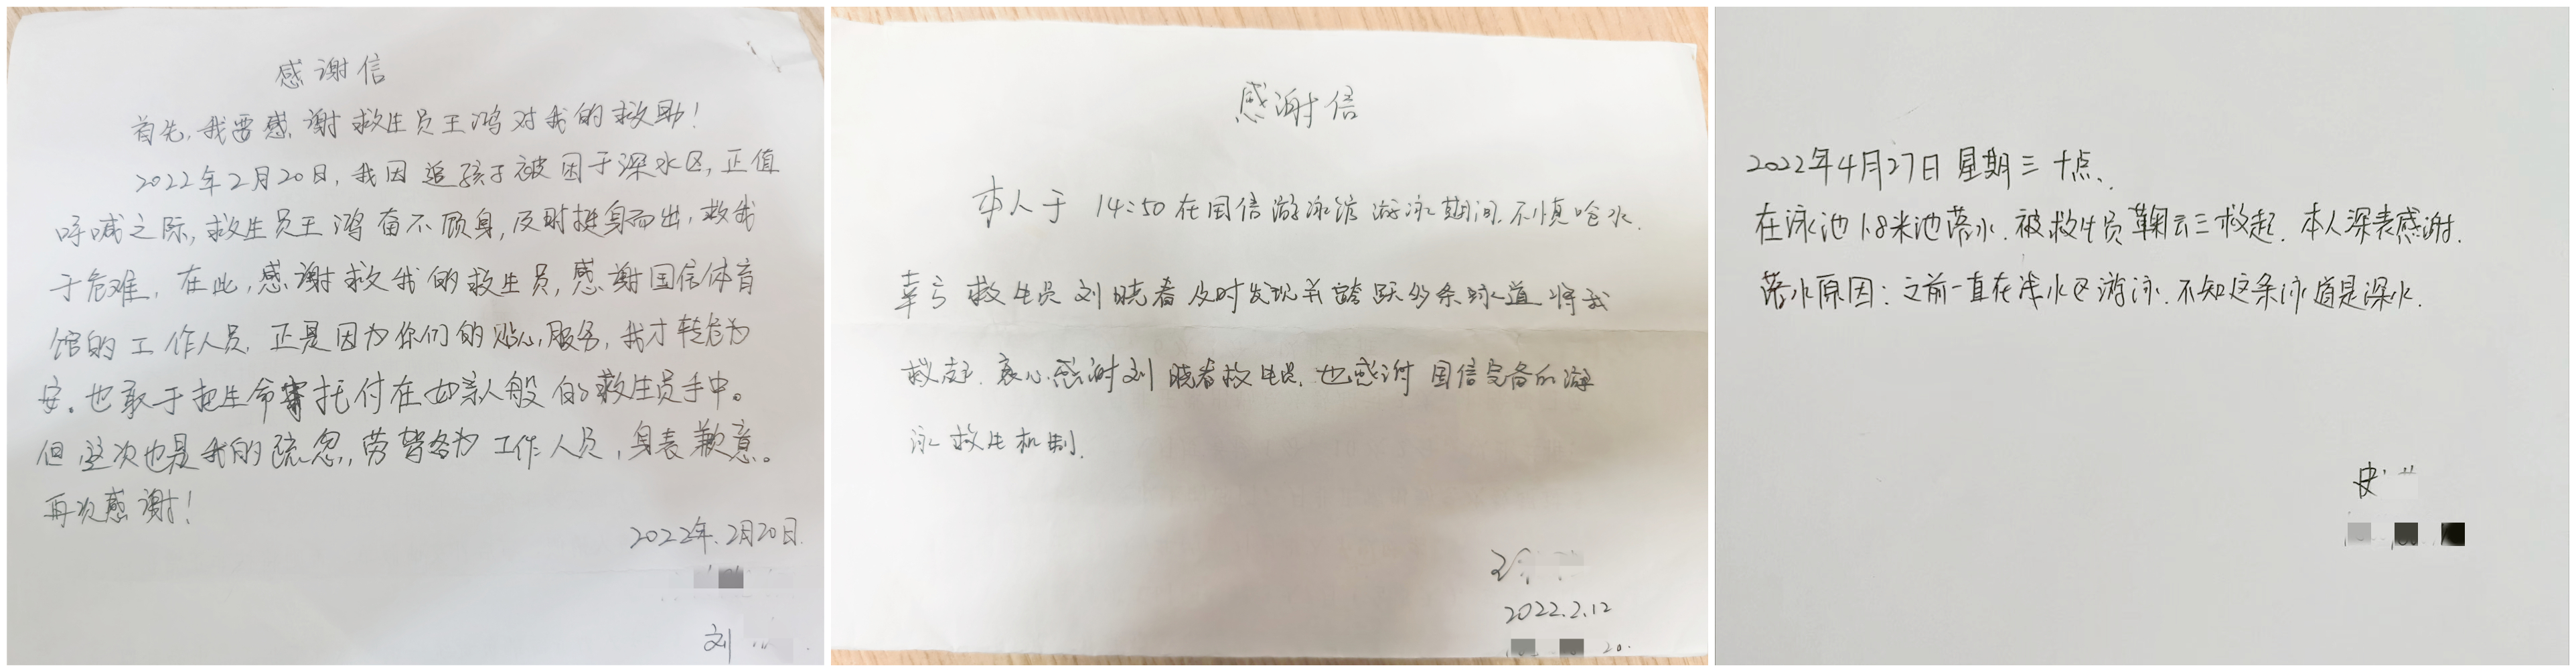 感谢信
首先,我要感谢救生员王鸿对我的救助!
2022年2月20日,我因追孩子被困于深水区,正值
呼喊之际,救生员王鸿奋不顾身,及时挺身而出,救我
于危难,在此,感谢救我的救生员,感谢国信体育
馆的工作人员,正是因为你们的贴心服务,我才转危为
安。也敢于把生命寄托付在如亲人般的救生员手中。
但这次也是我的疏忽,劳驾各为工作人员,身表歉意。
再次感谢!
2022年.2月20日.
刘
感谢信
本人于 14:50在国信游泳馆游泳期间,不慎呛水.
幸亏救生员刘晓春及时发现并跨跃多条泳道将我
救起.衷心感谢刘晓春救生员.也感谢国信完备的游
泳救生机制.
2022.2.12
20.
2022年4月27日 星期三十点.
在泳池1.8米池落水.被救生员鞠云三救起.本人深表感谢.
落水原因:之前一直在浅水区游泳.不知这条泳道是深水.
史